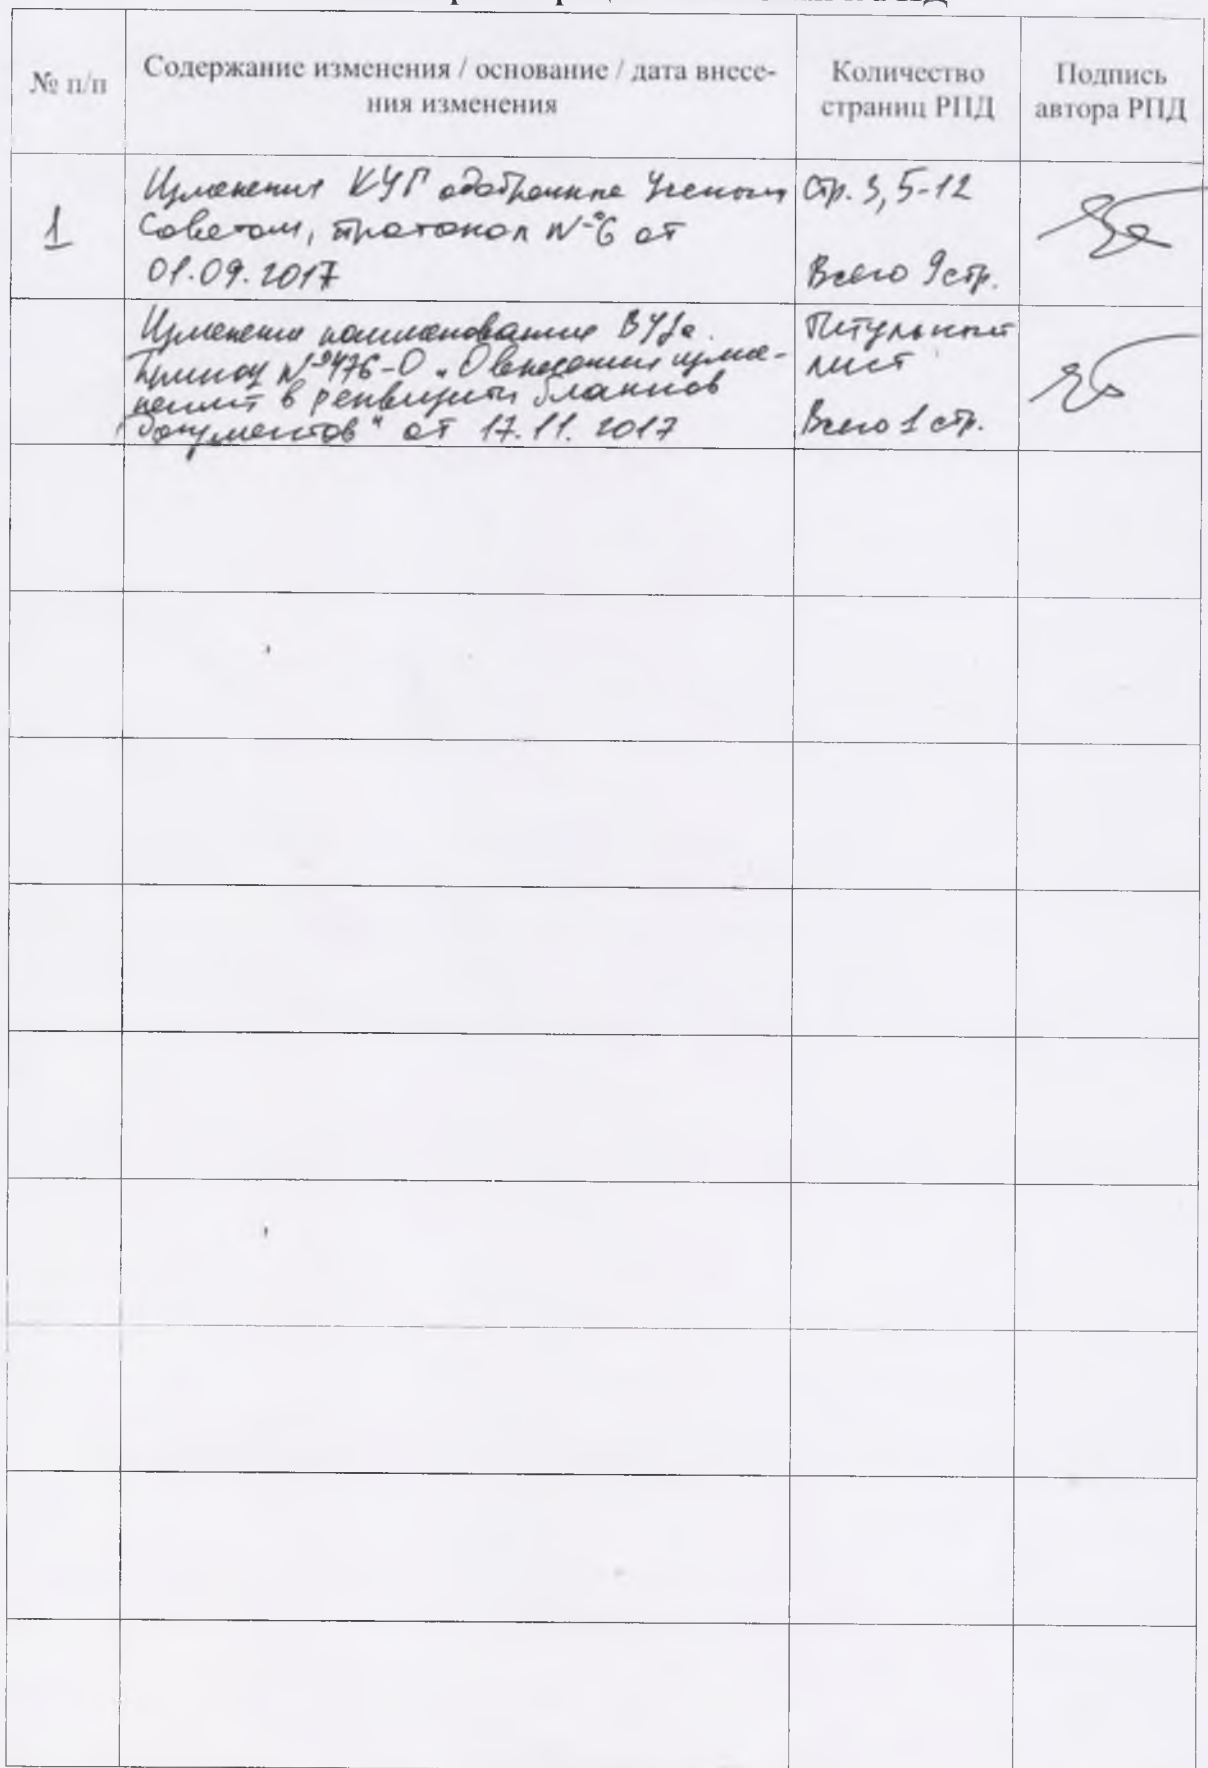 № п/п
Содержание изменения / основание / дата внесе-
ния изменения
Количество
страниц РПД
Подпись
автора РПД
1
Изменения КУГ одобренные Ученым
Советом, протокол №6 от
01.09.2017
Стр. 3, 5-12
Всего 9 стр.
Изменения наименования ВУЗа.
Приказ №476-О „О внесении изме-
нений в реквизиты бланков
документов“ от 17.11.2017
Титульный
лист
Всего 1 стр.